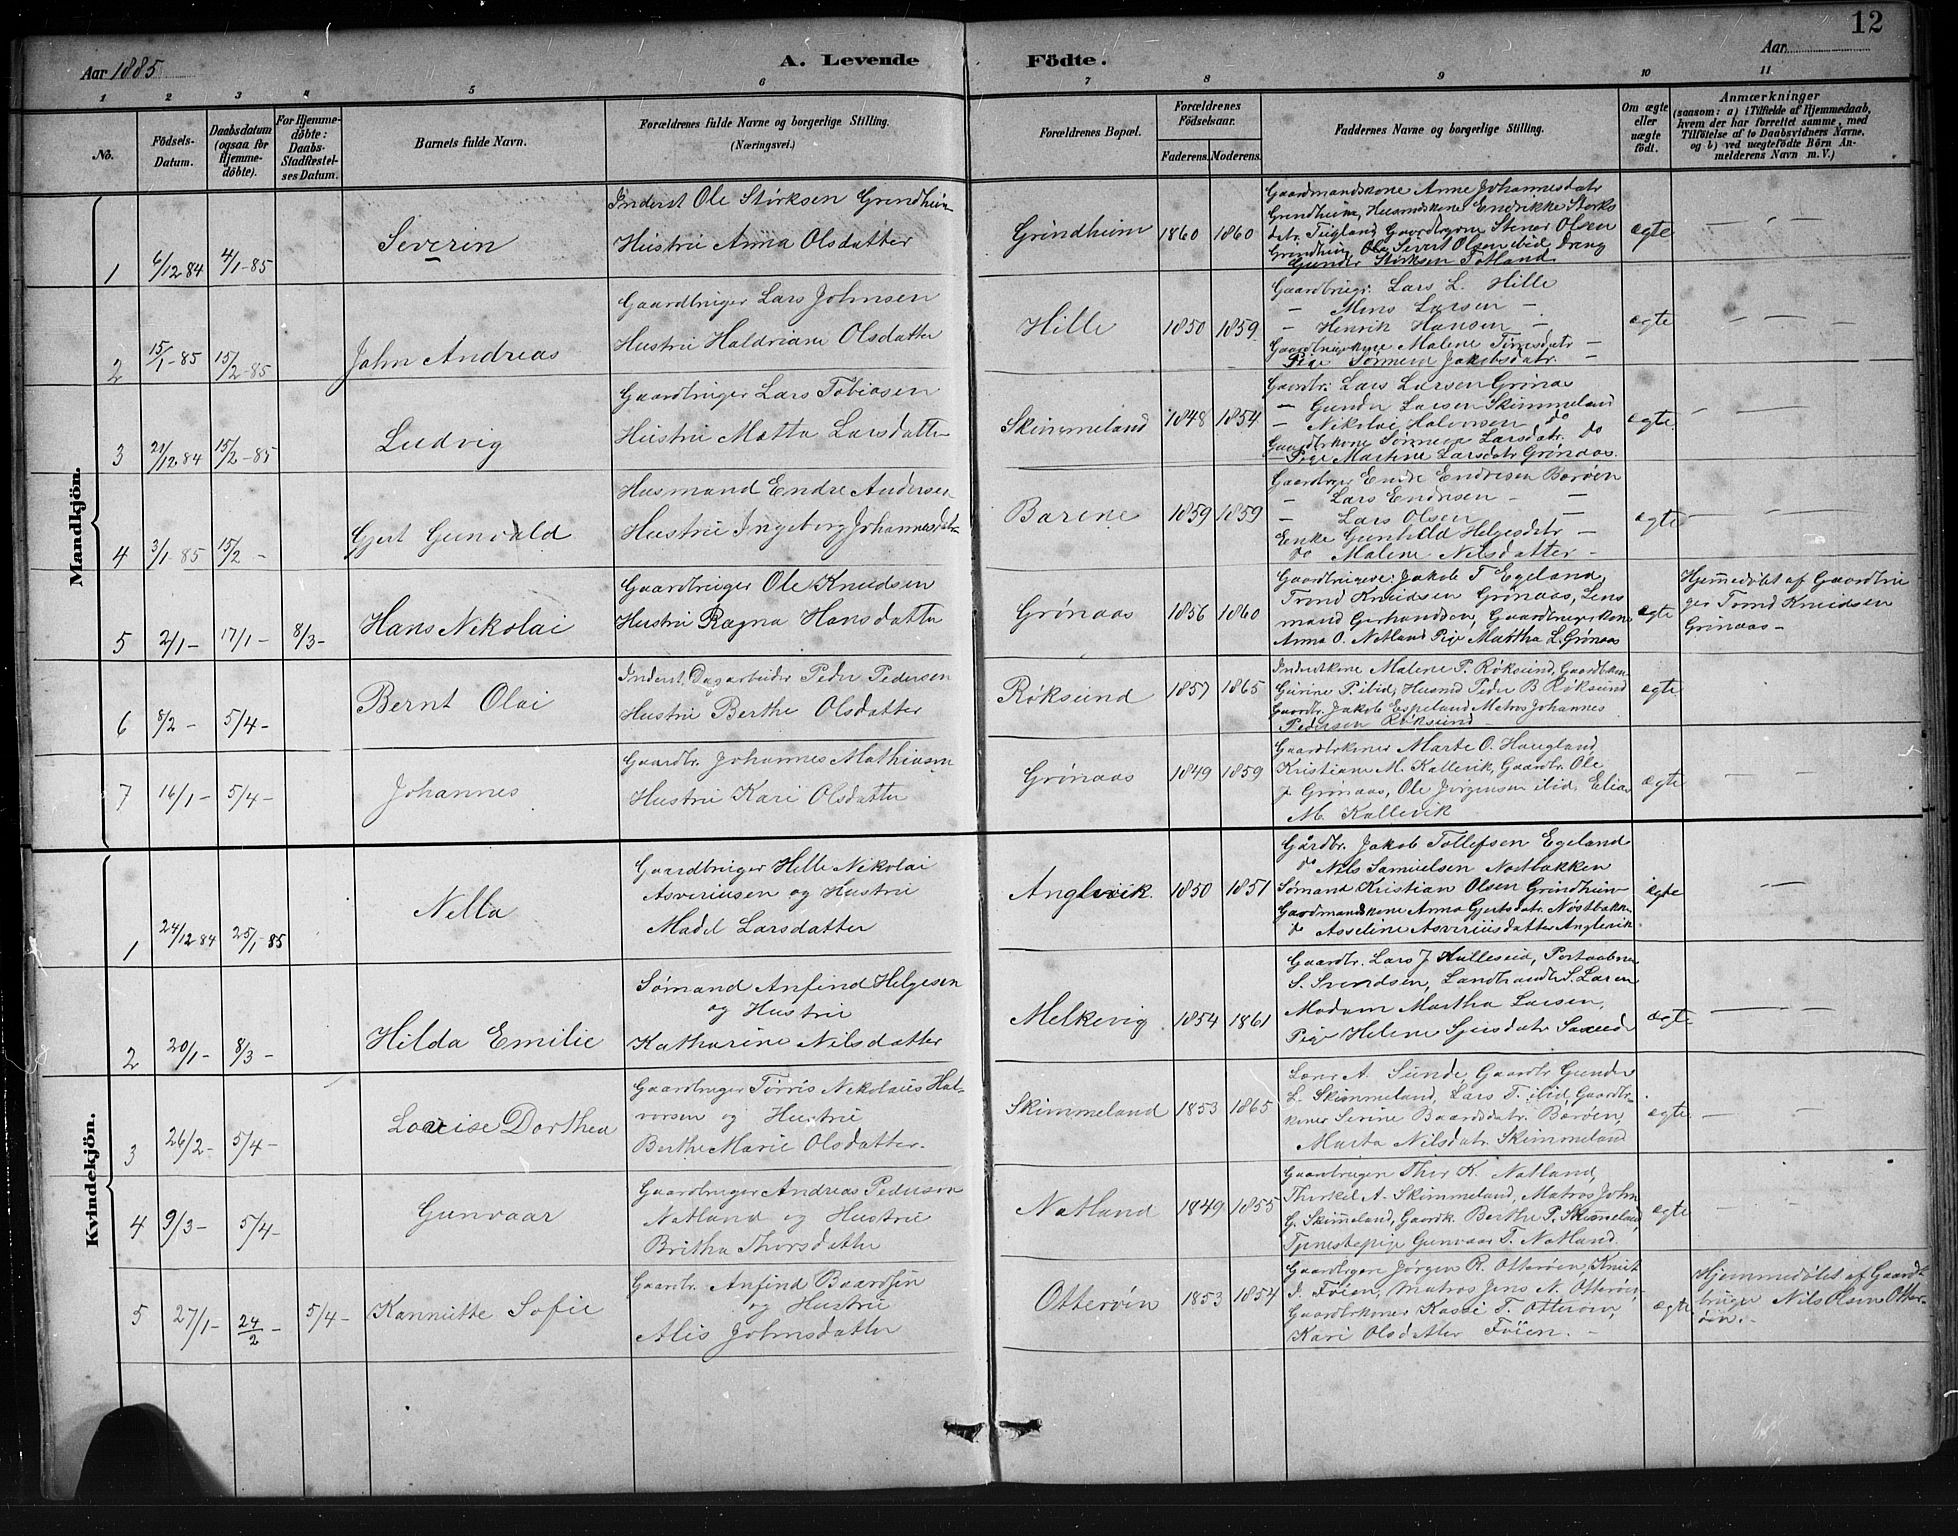 12
Aar 1885
A. Levende Födte.
Aar
1 2 3 4 5 6 7 8 9 10 11
No.
Födsels-Datum.
Daabsdatum (ogsaa for Hjemmedöbte).
For Hjemmedöbte: Daabs-Stadfæstelses Datum.
Barnets fulde Navn.
Forældrenes fulde Navne og borgerlige Stilling.
(Næringsvei.)
Forældrenes Bopæl.
Forældrenes Födselsaar.
Faderens. Moderens.
Faddernes Navne og borgerlige Stilling.
Om ægte eller uægte födt.
Anmærkninger
(saasom: a) i Tilfælde af Hjemmedaab, hvem der har forrettet samme, med Tilföielse af to Daabsvidners Navne, og b) ved uægtefödte Börn Anmelderens Navn m. V.)
Mandkjön.
1 6/12 84 4/1-85 Severin
Inderst Ole Størksen Grindheim
Hustru Anna Olsdatter
Grindheim 1860 1860
Gaardmandskone Anne Johannesdatr
Grindheim, Husmdskone Endrikke Størks
datr. Teigland, Stener Olsen
Grindheim, Ole Sivert Olsen ibid, dreng
Gunder Størksen Totland
ægte
2 15/1-85 15/2-85 John Andreas
Gaardbruger Lars Johnsen
Hustru Haldriane Olsdatter
Hille 1850 1859
Gaardbrugr. Lars L. Hille
— Mons Larsen —
— Henrik Hansen —
Gaardbrugerkone Malene —
Pige Jakobsdatr. —
ægte
3 21/12 84 15/2-85 Ludvig
Gaardbruger Lars Tobiasen
Hustru Matta Larsdatter
Skimmeland 1848 1854
Gaardbr. Lars Larsen Grönaas
— Gunder Larsen Skimmeland
— Nikolai Halvorsen do
Gaardbrkone Larsdatr. do
Pige Martine Larsdatr Grönaas.
ægte
4 3/1-85 15/2 — Gjert Gunvald
Husmand Endre Andersen
Hustru Ingeborg Johannesdatr
Barene 1859 1859
Gaardbrger Endre Endresen Borøen
— Lars Endresen — —
— Lars Olsen —
Enke Gunhild Helgesdatr —
do Malene Nilsdatter —
ægte
5 2/1- 17/1- 8/3- Hans Nikolai
Gaardbruger Ole Knudsen
Hustru Ragna Hansdatter
Grønaas 1856 1860
Gaardbrugere: Jakob T Egeland,
Trond Knudsen Grønaas, Lens
mand Gerhardsen, Gaardbrugerkone
Anna O. Natland Pige Martha L. Grønaas
ægte
Hjemmedøbt af Gaardbru
ger Trond Knudsen
Grønaas —
6 8/2 — 5/4 — Bernt Olai
Inderst, Dagarbeider Peder Pedersen
Hustru Berthe Olsdatter
Røksund 1857 1865
Inderstkone Malene P. Røksund, Gaardbkone
Gurine P. ibid, Husmd Peder B. Røksund
Gaardbr. Jakob Espeland Matros Johannes
Pedersen Røksund —
ægte
7 16/1 — 5/4 — Johannes
Gaardbr. Johannes Mathiasen
Hustru Kari Olsdatter
Grønaas 1849 1859
Gaardbrkoner Marte O. Haugland
Kristiane M. Kallevik, Gaardbr. Ole
J. Grønaas, Ole Jørgensen ibid, Elias
M. Kallevik
ægte
Kvindekjön.
1 24/12 84 25/1-85 Nella
Gaardbruger Helle Nikolai
Asveriusen og Hustru
Madel Larsdatter
Anglevik. 1850 1851
Gårdbr. Jakob Tollefsen Egeland
do Nils Samuelsen Nøstbakken
Sømand Kristian Olsen Grindheim
Gardmandskone Anna Gjertsdatr. Nøstbakk.
do Asseline Asveriusdatter Anglevik
ægte
2 20/1- 8/3- Hilda Emilie
Sømand Anfind Helgesen
og Hustru
Katharine Nilsdatter
Melkevig 1854 1861
Gaardbr. Lars J Kulleseid, Postaabner
S. Svendsen, Landhandlr S. Larsen
Madam Martha Larsen,
Pige Helene
ægte
3 26/2- 5/4- Lovise Dorthea
Gaardbruger Tørris Nikolaus Hal-
vorsen og Hustru
Berthe Marie Olsdatter.
Skimmeland 1853 1865
Lærer A. Sunde, Gaardbr Gunder
L. Skimmeland, Lars T. ibid, Gaardbr-
koner Serine Baardsdatr. Borøen,
Marta Nilsdatr Skimmeland
ægte
4 9/3- 5/4- Gunvaar
Gaardbruger Andreas Pederson
Natland og Hustru
Britha Thorsdatter
Natland 1849 1855
Gaardbrugere Thor K. Natland,
Thorkel A. Skimmeland, Matros John
G. Skimmeland, Gaardk. Berthe P. Skimmeland
Tjenestepige Gunvaar T. Natland.
ægte
5 27/1- 24/2 - 5/4- Kannutte Sofie
Gaardbr. Anfind Baardsen
og Hustru
Alis Johnsdatter
Otterøin 1853 1854
Gaardbrgere Jørgen R. Otterøen, Knut
I. Føien, Matros Jens N. Otterøin,
Gaardbrkoner Kassi T. Otterøin,
Kari Olsdatter Føien. —
ægte
Hjemmedøbt af Gaard-
bruger Nils Olsen Otter-
øin.